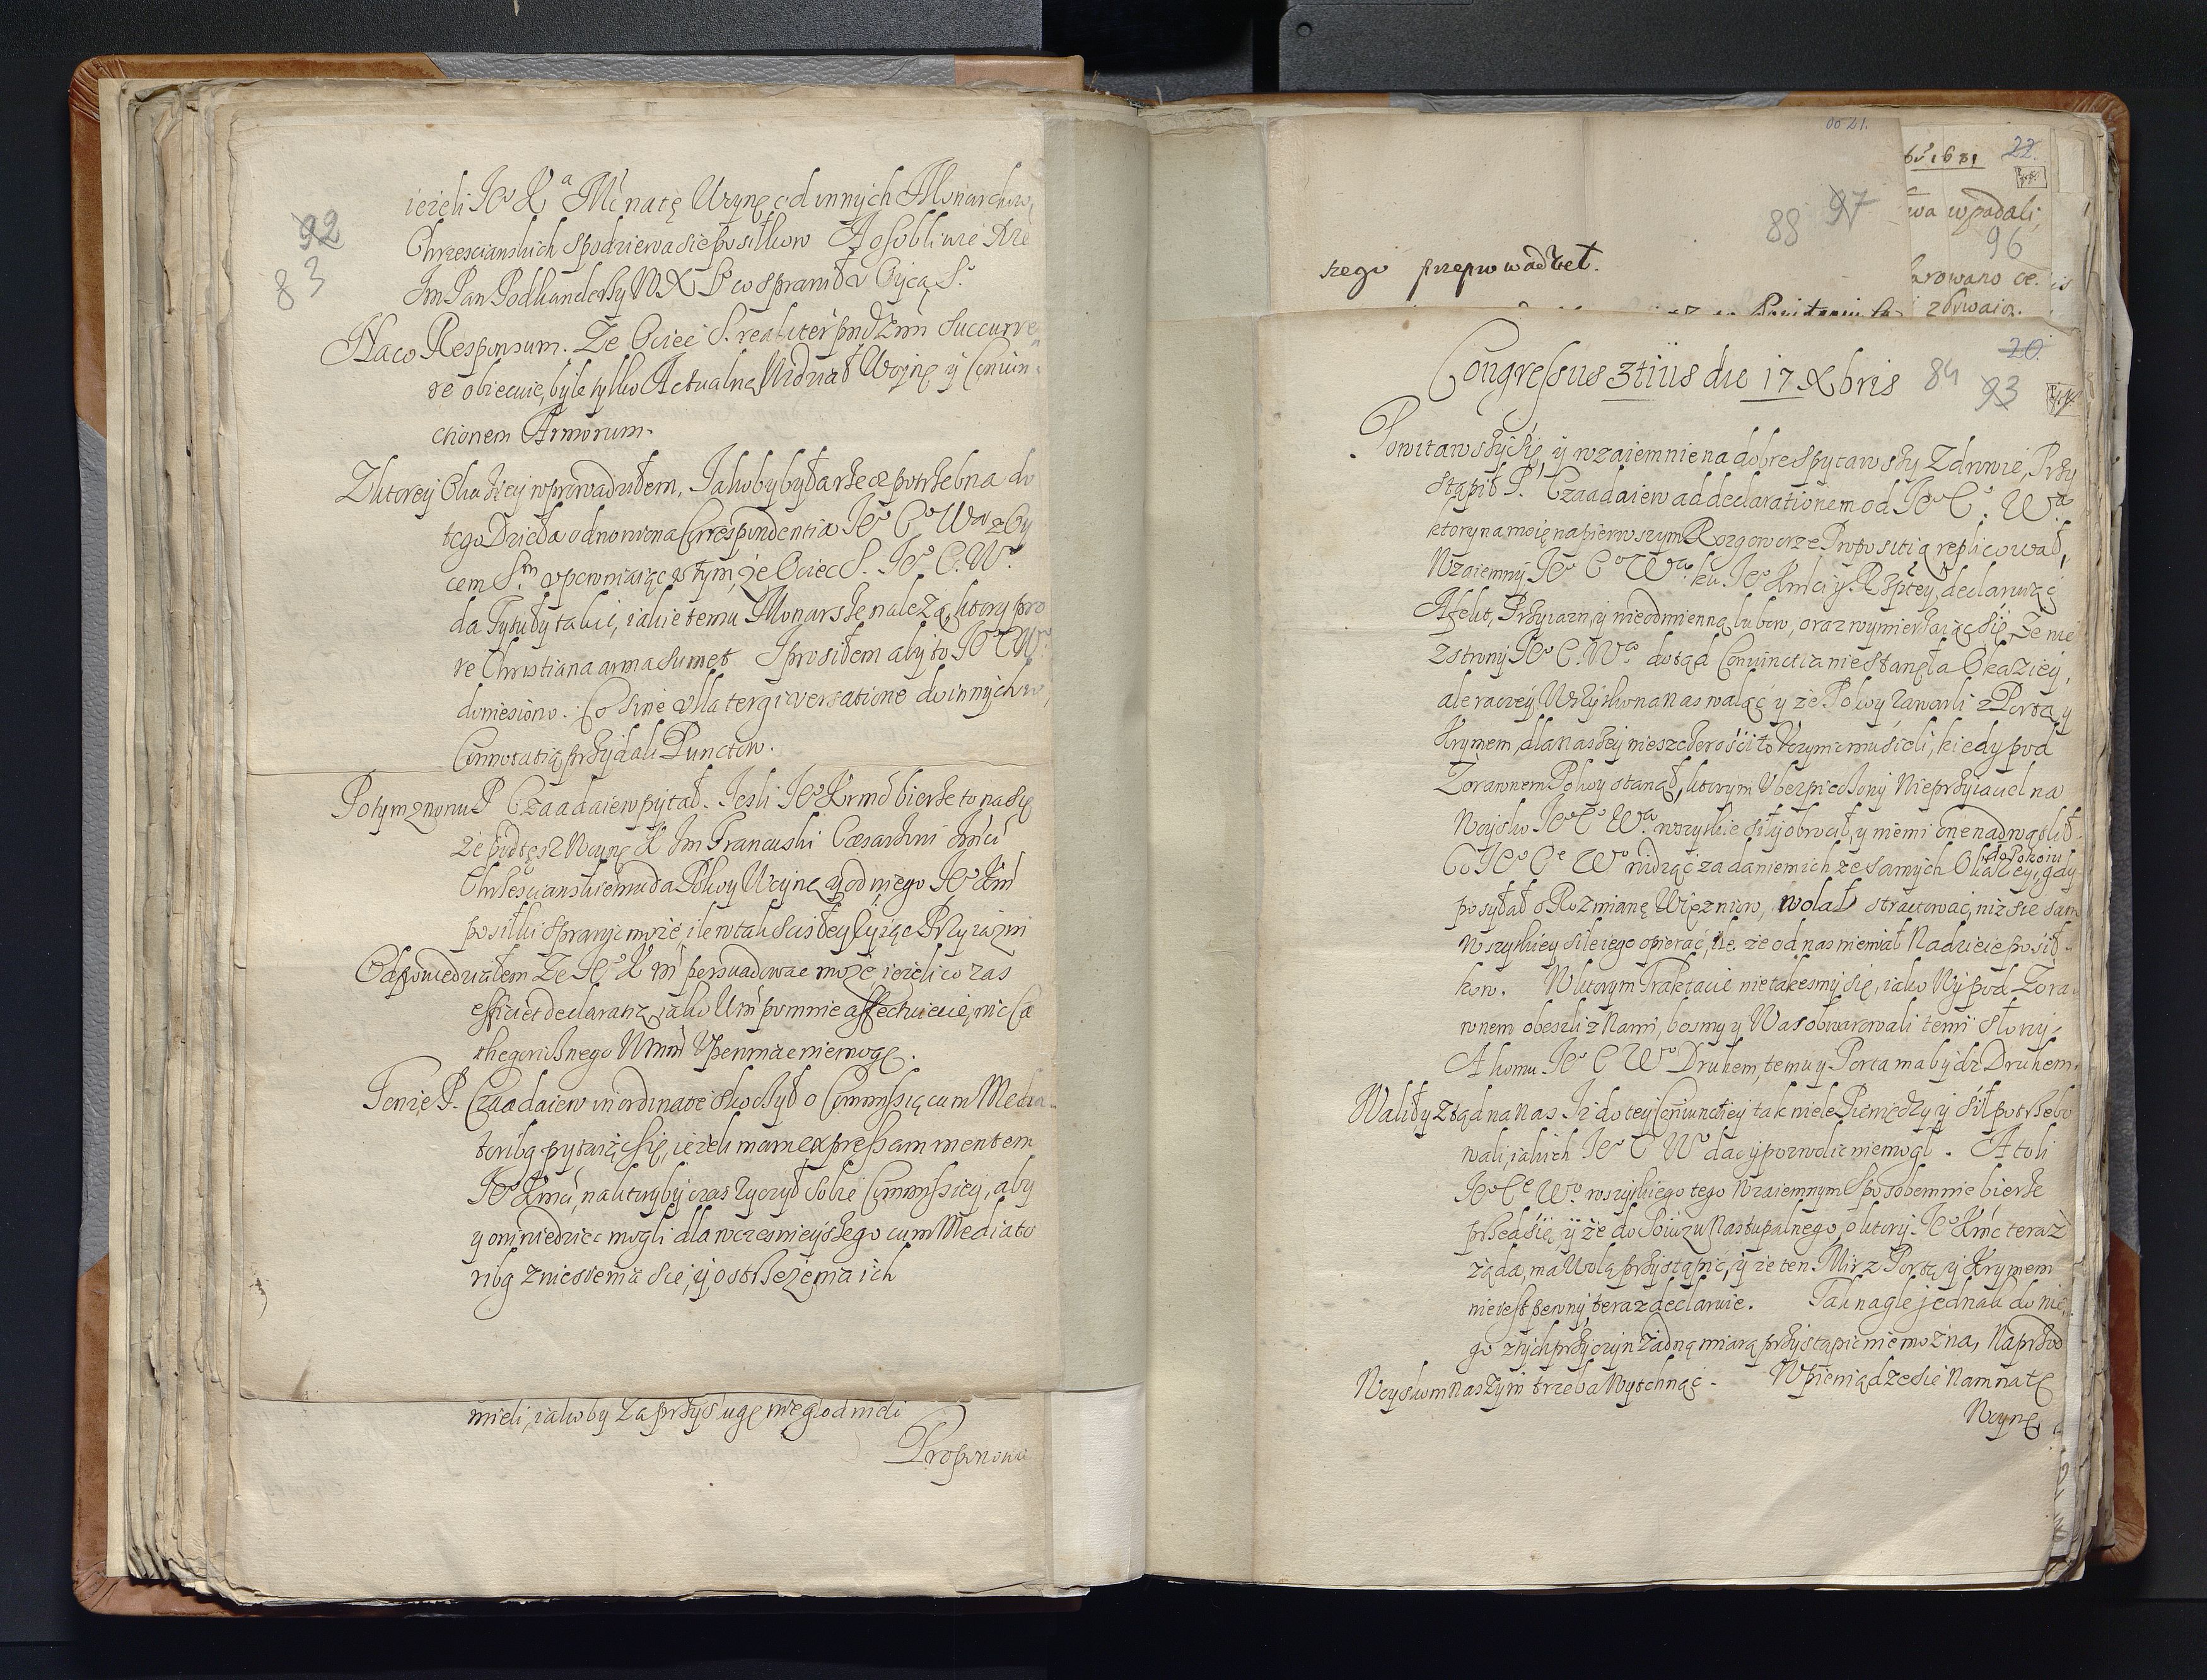 92
83
ieżeli Je° K^a Mć natę Uoynę od innych Monarchow
Chrzescianskich spodziewa się posiłkow A osobliwie Kże
Jm Pan Podkanclerzy WXL° co sprawił u Oyca S.
Naco Responsum. Że Ociec S. realiter pndzmi succurre
re obiecuie, byle tylko Actualną widział Woynę y Coniun
ctionem Armorum.
Zktorey Okaziey wprowadziłem, Jakoby była rzecz potrzebna do
tego Dzieła odnowiona Correspondentia Je° C° W^a z Oy
cem S^m upewniaiąc o tym, że Ociec S. Je° C. W°
da Tytuły takie, iakie temu Monarsze należą, ktory pro
re Christiana arma sumet Iprosiłem aby to Je° C W°
doniesiono. Co sine ulla tergiversatione do innych w
Connotatią przydali Punctow.
Potym znowu P Czaadaiew pytał. Jesli Je° Krmć bierze to nasię
że podtęsz Woynę K Jm Francuski Caesarowi Jmći
Chrzescianskiemu da Pokoy Woynę, a y od niego Je° Km
posiłki sprawić może ile wtak scisłey żyiąc Przyiazni
Odpowiedziałem Że Je° K M persuadowac może ieżeli co zas
efficiet declarans, iako Um po mnie affectuiecie, nic Ca
thegoricznego Wmm Upewniac niemogę.
Tenże P. Czaadaiew inordinate skoczył o Commissią cum Media
toribg pytaiąc się, ieżeli mam expressam mentem
Je° Kmći, na ktoryby czas życzył sobie Commissiey, aby
y oni wiedziec mogli dla wczesnieyszego cum Mediato
ribg zniesienia się, y ostrzeżenia ich
mieli, iakoby za przysługę niegłodnieli
Proponowa
00 21.
88 97
szego przeprowadzeł.
bs 1681 22.
wa wpadali
96
arowano ce.
zbywaią.
Congressus 3tius die 17 Xbris
84 93
20.
Powitawszy się, y wzaiemnie na dobre spytawszy zdrowie, Przy
stąpił P. Czaadaiew ad declarationem od Je° C°. W^a
ktory na moię na pierwszym Rozgoworze Propositią replicował,
Wzaiemny Je° C° W^a. ku. Je° Kmći y Rzptey, declaruiąc
Afekt, Przyiazn, y nieodmienną lubow, oraz wymierzaiąc się, Że nie
z strony Je° C. W^a. dotąd Coniunctia nie stanęła Okaziey,
ale raczey Wszystko na Nas waląc y że Pokoy zawarli z Portą y
Krymem, dla naszey nieszczerości to Uczynic musieli, kiedy pod
Żorawnem Pokoy stanął, ktorym Ubezpieczony Nieprzyiaciel na
Woysko Je° C° W^a. wszystkie siły obrocił, y niemi one nadwątlił.
Co Je° C^e W° widząc za daniem ich ze samych Okaziey do Pokoiu, gdy
posyłał o Rozmianę Więzniow, wolał stractować, niż się sam
wszystkiey sile iego opierać, ile że od nas niemiał Nadzieie posił
kow. Wktorym Traktacie nietakesmy się, iako Wy pod Żora
wnem obeszli z Nami, bosmy y Was obwarowali temi słowy,
A komu Je° C W° Druhem, temu y Porta ma bydz Druhem.
Walily ztąd na Nas Iż do tey Coniunctiey tak wiele Pieniędzy y sił potrzebo
wali, iakich Je° C W° dac y pozwolic niemogl. A toli
Je° C^e W°. wszystkiego tego Wzaiemnym sposobem nie bierze
przed się, y że do Soiuzu Nastupalnego, o ktory Je° Kmć teraz
żąda, ma Wolą przystąpić, y że ten Mir z Portą y Krymem
nieiest pewny, teraz declaruie. Tak nagle jednak do nie
go z tych przyczyn żadną miarą przystąpic nie można, Naprzod
Woyskom Naszym trzeba Wytchnąć. Wpieniądze się Nam natę
Woynę